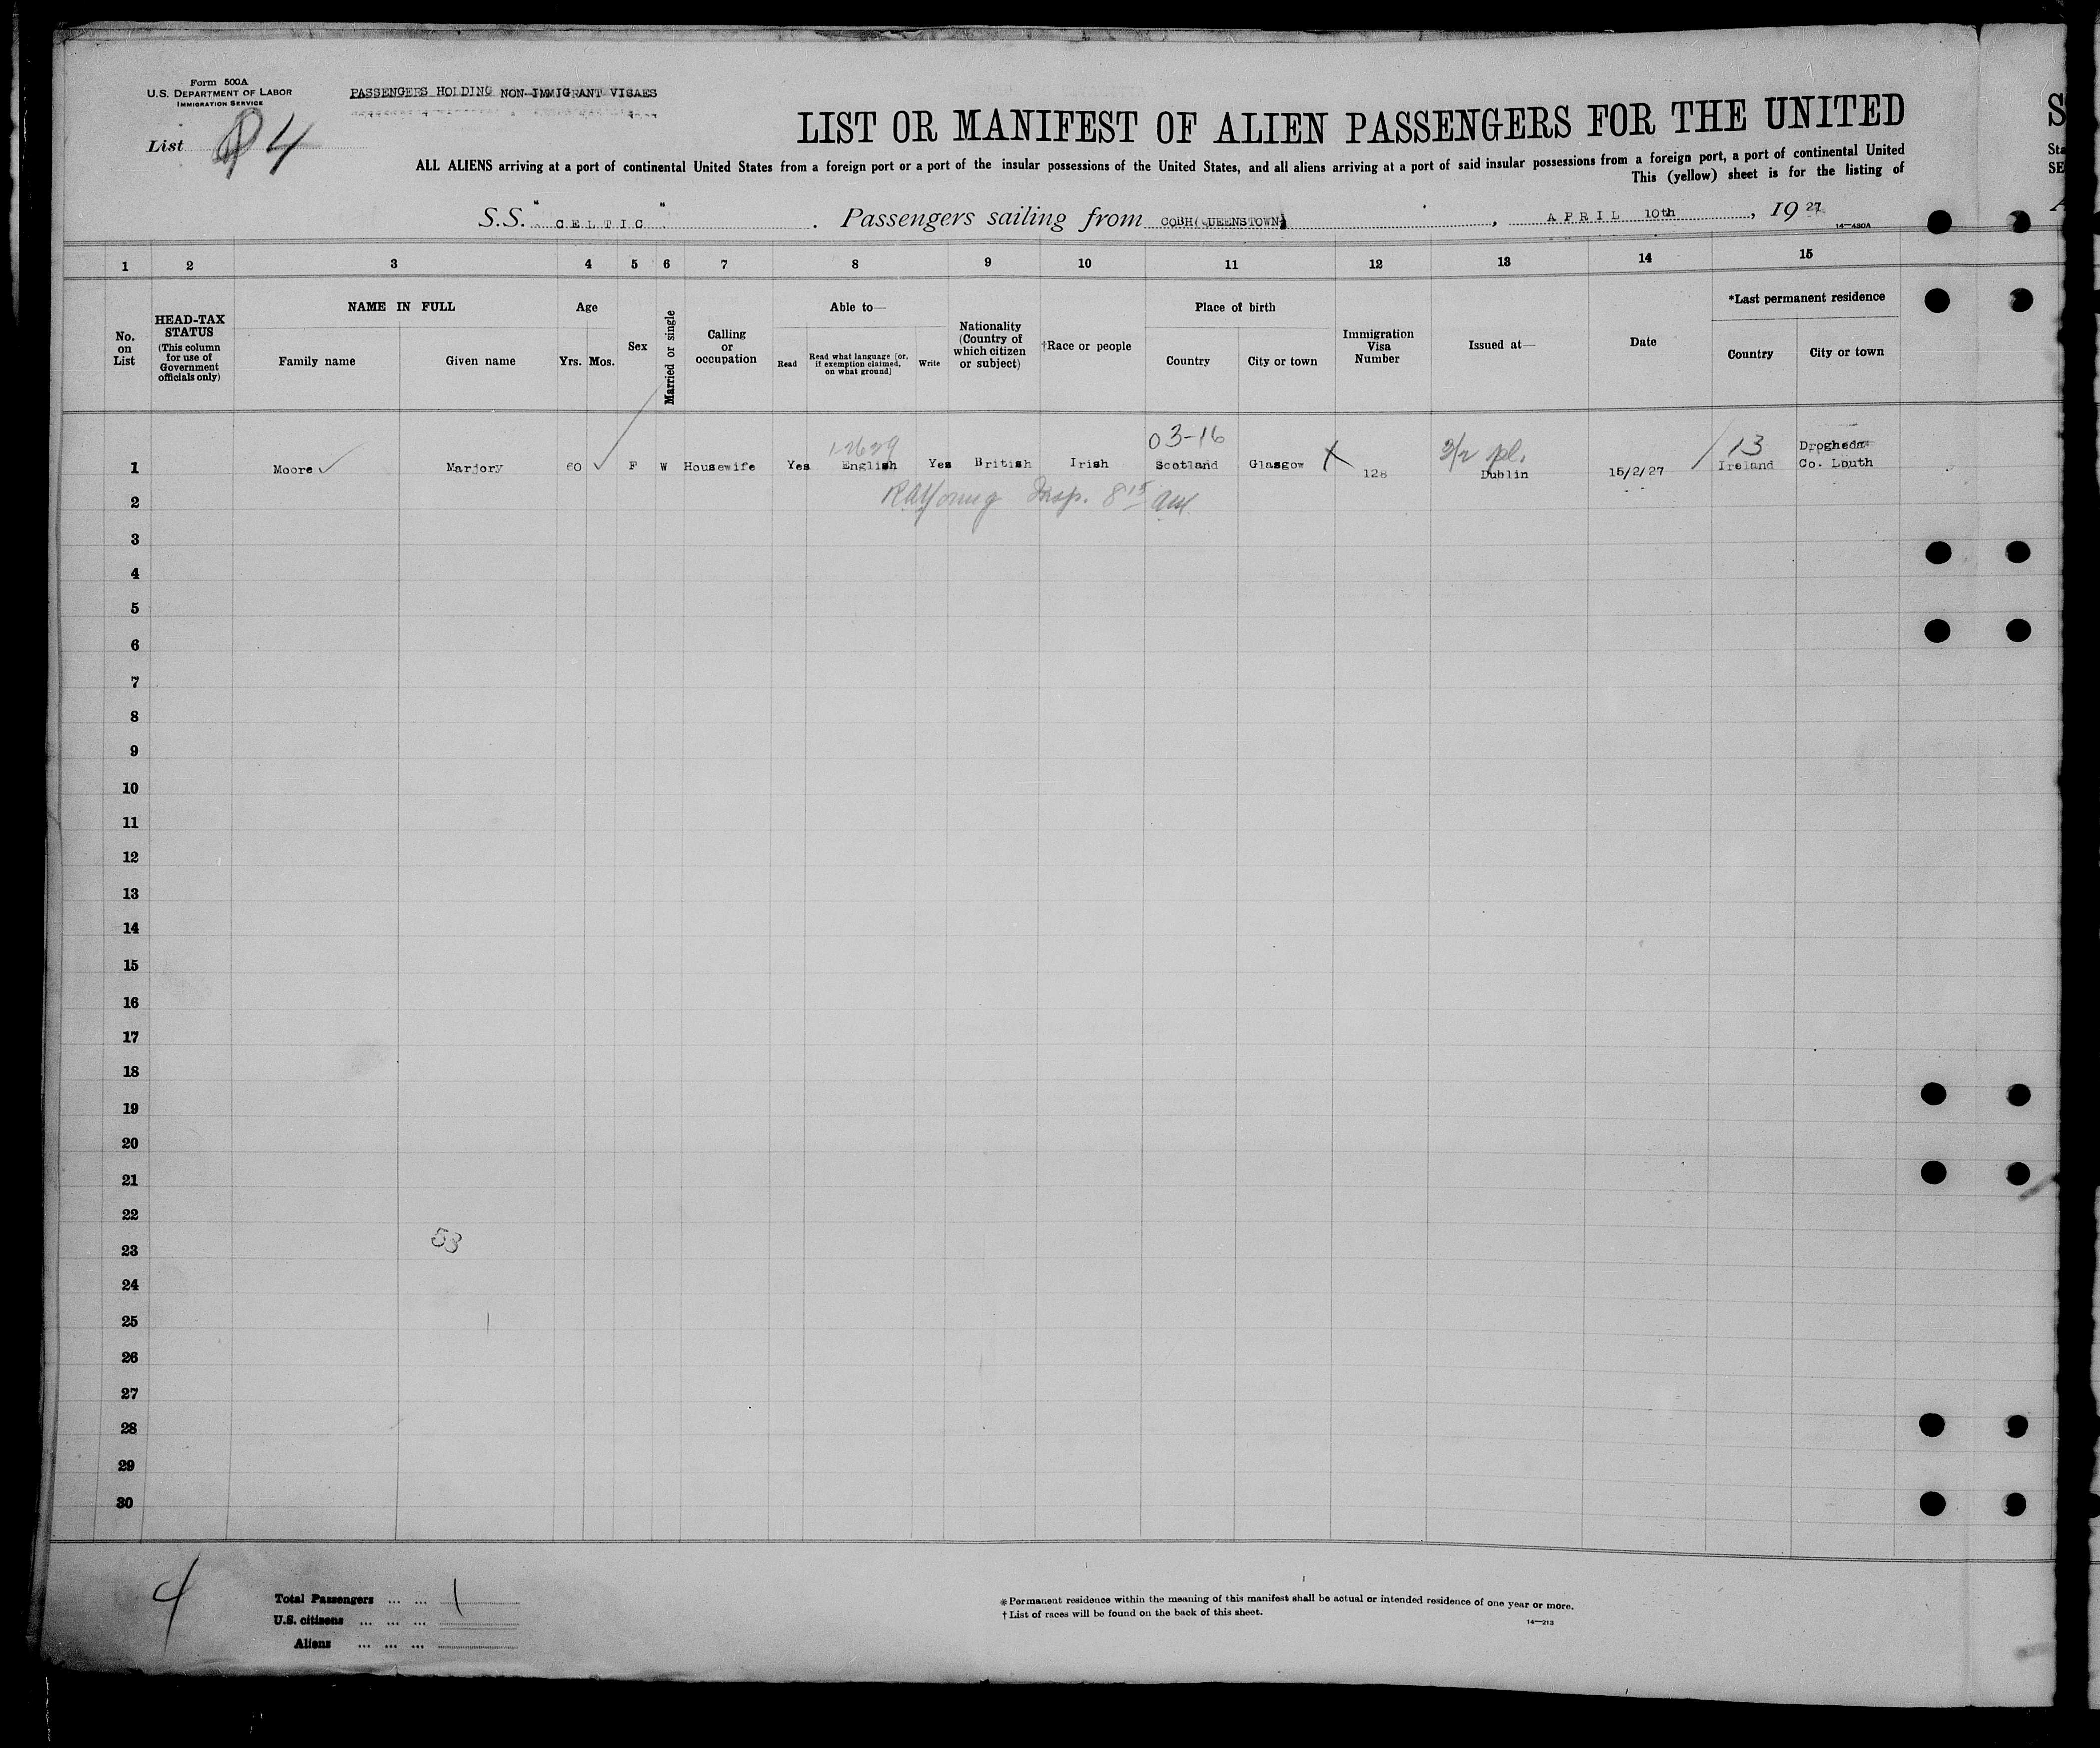 Form 500A
U.S. DEPARTMENT OF LABOR
IMMIGRATION SERVICE
PASSENGERS HOLDING NON-IMMIGRANT VISAES
List 4
LIST OR MANIFEST OF ALIEN PASSENGERS FOR THE UNITED
S
ALL ALIENS arriving at a port of continental United States from a foreign port or a port of the insular possessions of the United States, and all aliens arriving at a port of said insular possessions from a foreign port, a port of continental United
Sta
This (yellow) sheet is for the listing of
SE
S.S. "CELTIC". Passengers sailing from COBH(QUEENSTOWN), APRIL 10th, 1927
14—430A
1 2 3 4 5 6 7 8 9 10 11 12 13 14 15
No. on List
HEAD-TAX STATUS
(This column for use of Government officials only)
NAME IN FULL
Family name Given name
Age
Yrs. Mos.
Sex
Married or single
Calling or occupation
Able to—
Read
Read what language [or, if exemption claimed, on what ground]
Write
Nationality (Country of which citizen or subject)
†Race or people
Place of birth
Country City or town
Immigration Visa Number
Issued at—
Date
*Last permanent residence
Country City or town
03-16
13
1 Moore Marjory 60 F W Housewife Yes English Yes British Irish Scotland Glasgow 128 Dublin 15/2/27 Ireland Drogheda Co. Louth
Insp. 8 15 am
2
3
4
5
6
7
8
9
10
11
12
13
14
15
16
17
18
19
20
21
22
53
23
24
25
26
27
28
29
30
4
Total Passengers ... ... 1
U.S. citizens ... ... ...
Aliens ... ... ...
*Permanent residence within the meaning of this manifest shall be actual or intended residence of one year or more.
†List of races will be found on the back of this sheet.
14—213